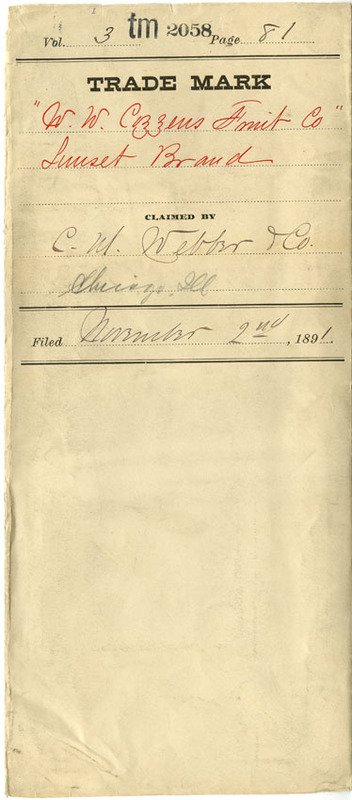 Vol. 3 tm 2058 Page 81
TRADE MARK
"W. W. Cozzens Fruit Co"
Sunset Brand
CLAIMED BY
C. H. Webber & Co.
Chicago, Ill
Filed November 2nd, 1891.